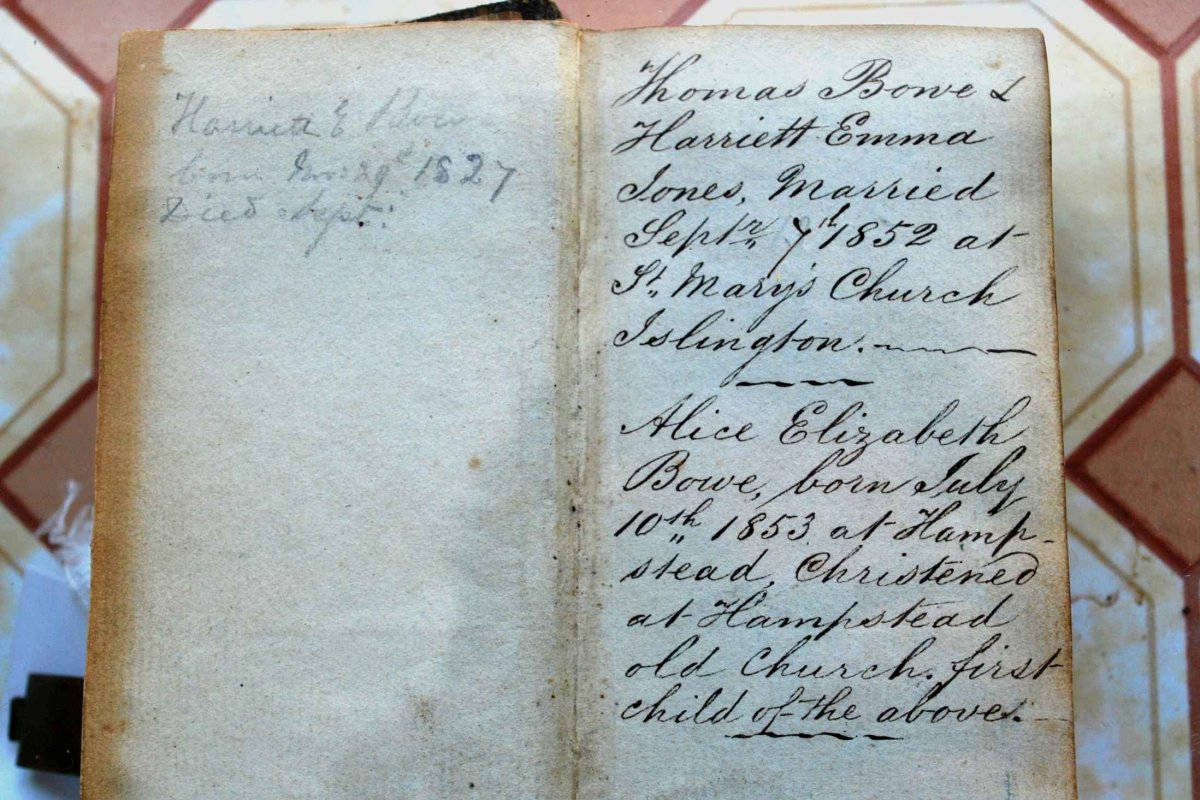 Harriett E Bowe
born Nov: 29th 1827
Died Sept:
Thomas Bowe &
Harriett Emma
Jones, Married
Septr 7th 1852 at
St,, Mary's Church
Islington.
Alice Elizabeth
Bowe, born July
10th,, 1853 at Hamp-
stead, Christened
at Hampstead
old Church. first
child of the above.